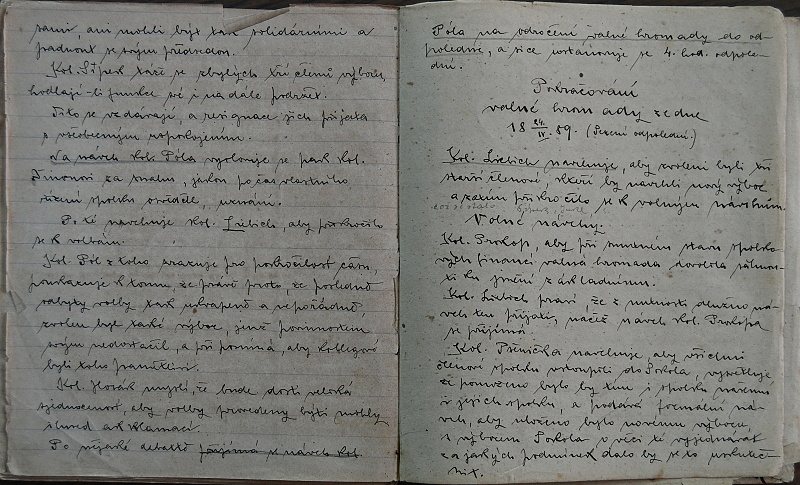 sami, ani mohli být tak solidárními a
padnout se svým předsedou.
Kol. Štipek táže se zbylých tří členů výboru,
hodlají-li funkce své i na dále podržet.
Tito se vzdávají, a resignace jich přijata
s všeobecným uspokojením.
Na návrh kol. Póla vyslovuje se pak kol.
Timonovi za snahu, jakou po čas vlastního
řízení spolku osvědčil, uznání.
Po té navrhuje kol. Liebich, aby přikročilo
se k volbám.
Kol. Pól z toho zrazuje pro pokročilost času,
poukazuje k tomu že právě proto, že posledně
volby tak ukvapeně a nepořádně
zvolen byl také výbor, jenž povinnostem
svým nedostačil, a připomíná, aby kollegové
byli toho pamětlivi.
Kol. Horák myslí, že bude dosti veliká
sjednocenost, aby volby provedeny býti mohly
ihned akklamací.
Po nějaké debattě přijímá se návrh kol.
Póla na odročení valné hromady do od-
poledne, a sice ustanovuje se 4. hod. odpole-
dní.
Pokračování
valné hromady ze dne
18 24/IV. 89. (Sezení odpolední.)
Kol. Liebich navrhuje, aby zvoleni byli tři
starší členové, kteří by navrhli nový výbor
a zatím přikročilo se k volným návrhům.
což se stalo
Volné návrhy.
Kol. Prokop, aby při smutném stavu spolko-
vých financí valná hromada dovolila sáhnou-
ti ku jmění základnímu.
Kol. Liebich praví, že z nutnosti dlužno ná-
vrh ten přijati, načež návrh kol. Prokopa
se přijímá.
Kol. Pšenička navrhuje, aby všichni
členové spolku vstoupili do Sokola, vysvětluje
že pomoženo bylo by tím i spolku našemu
i jejich spolku, a podává formální ná-
vrh, aby uloženo bylo novému výboru,
s výborem Sokola o věci té vyjednávat
za jakých podmínek dalo by se to uskuteč-
nit.